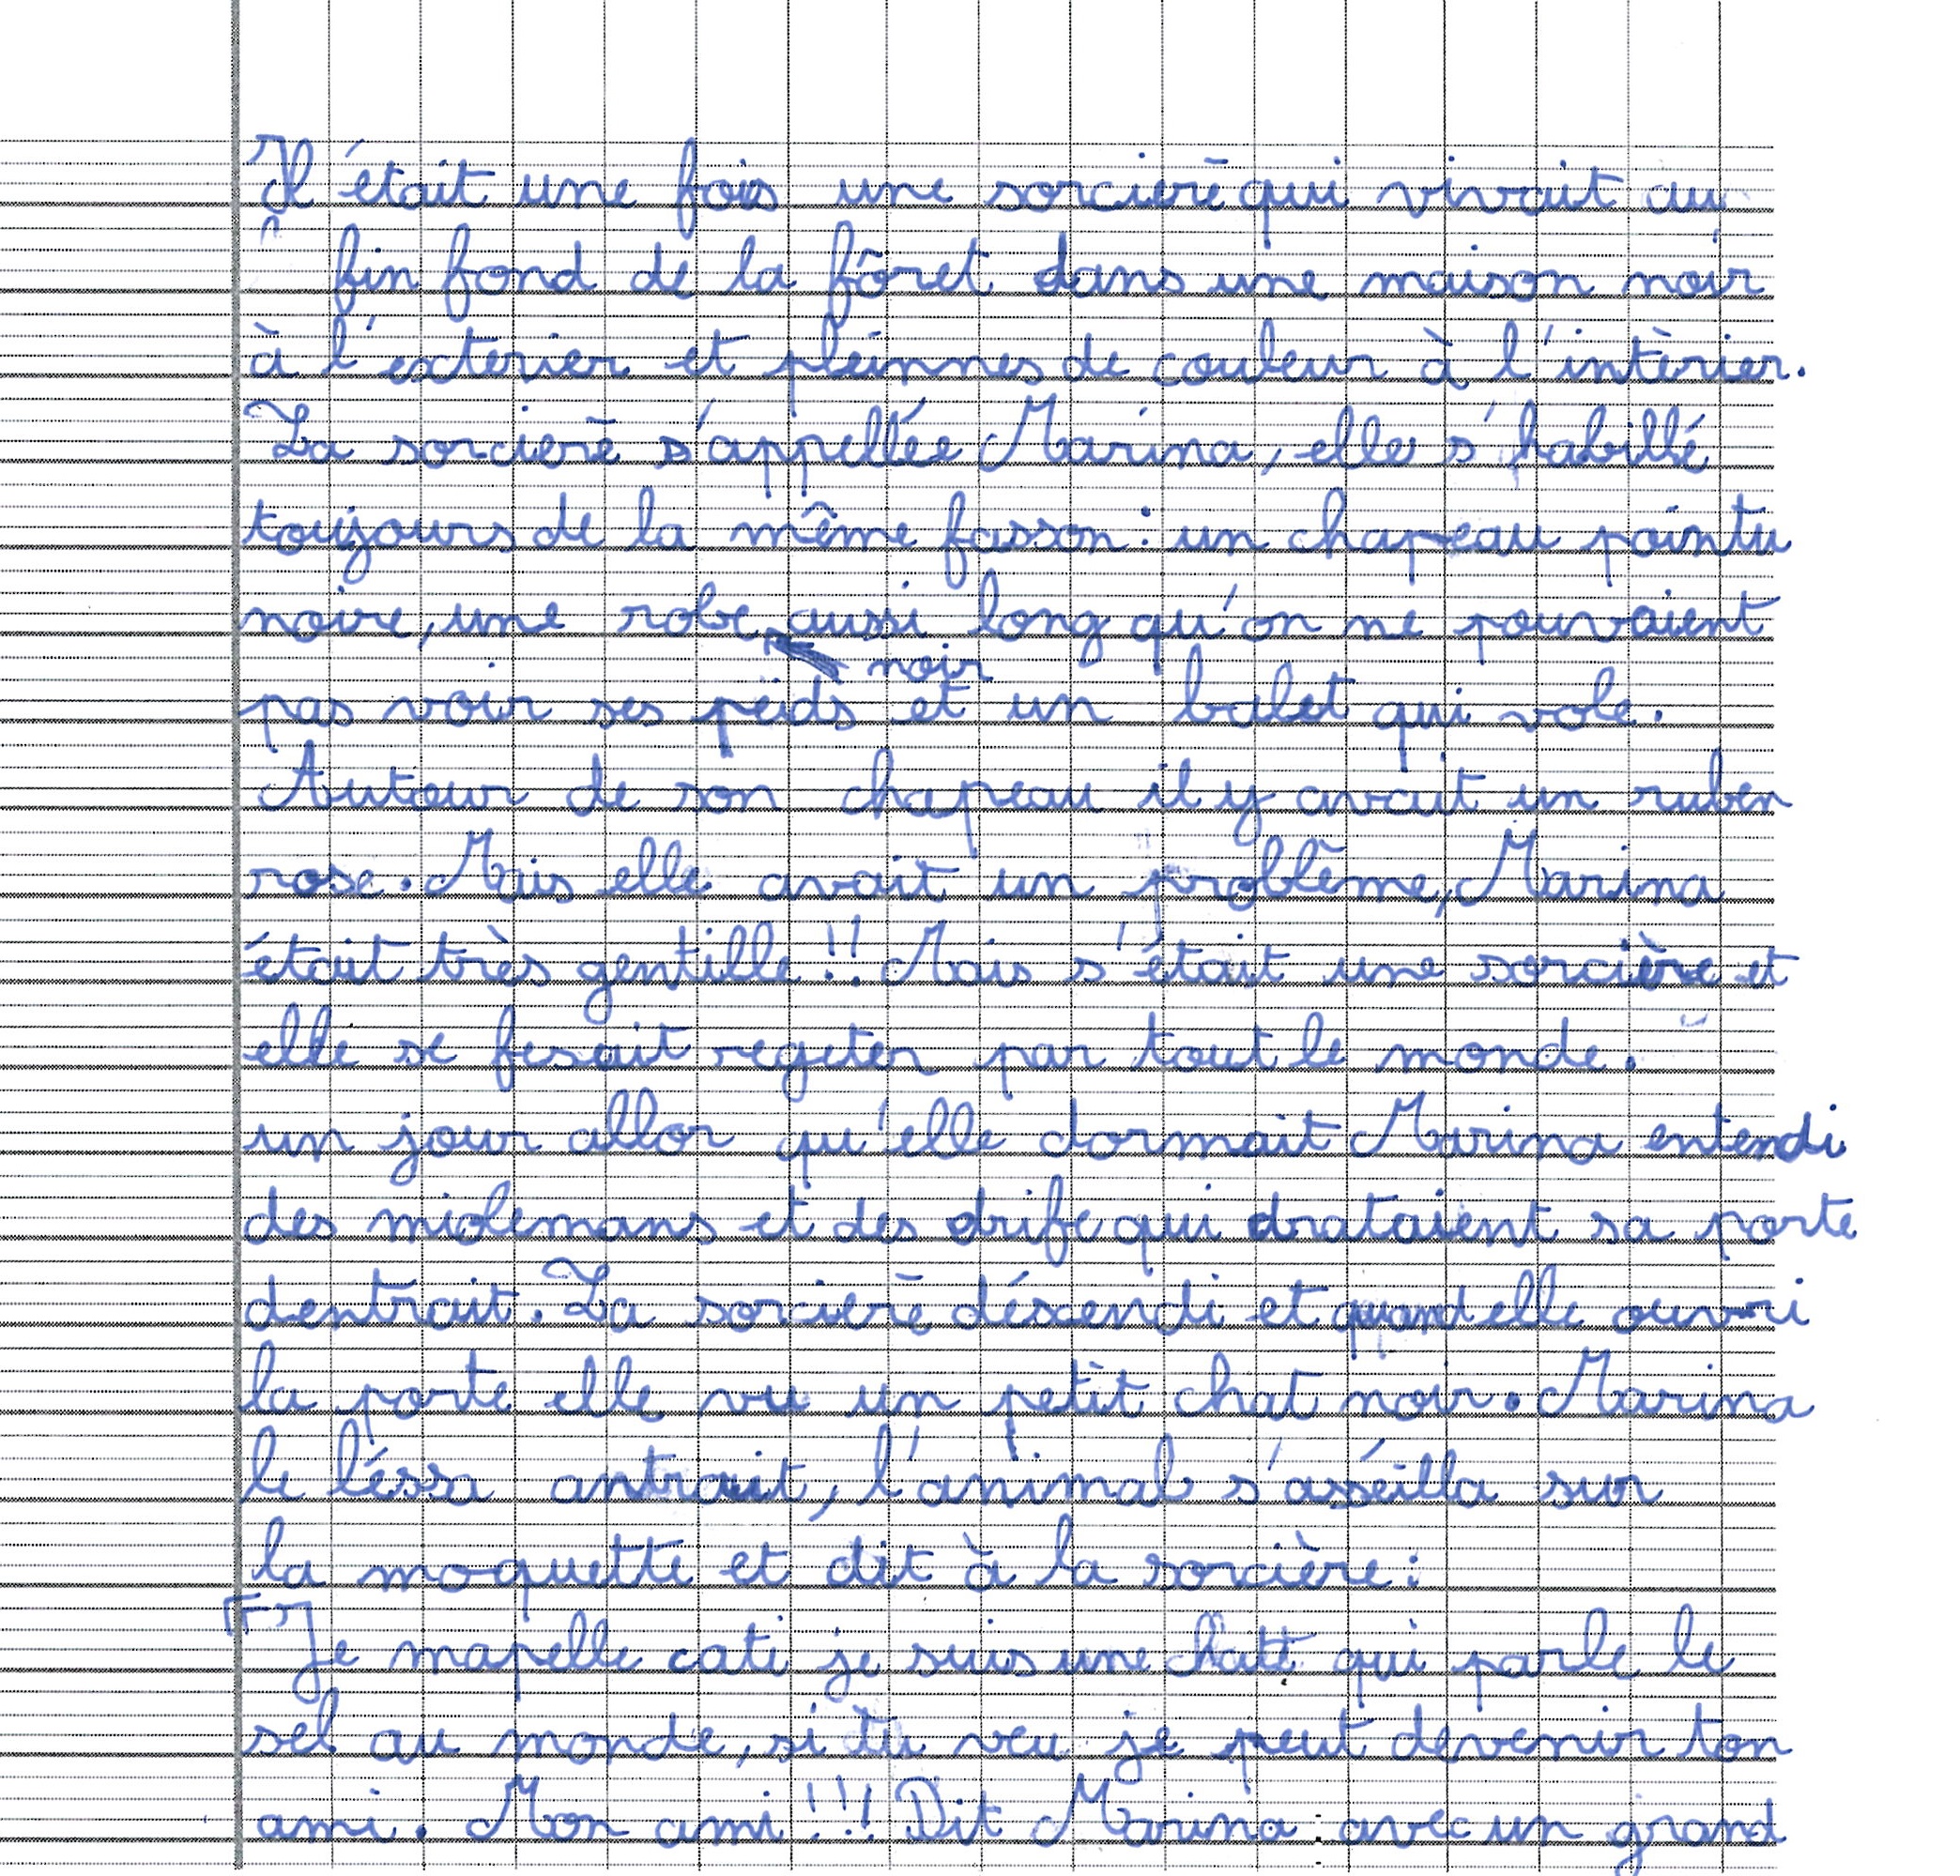 Il était une fois une sorcierè qui vivait au
fin fond de la fôret dans une maison noir
à l'exterier et pleinnes de couleur à l'intèrier.
La sorcierè s'appellée Marina, elle s'habillé
toujours de la même fasson : un chapeau pointu
noire, une robe aussi long qu'on ne pouvaient
noir
pas voir ses peids et un balet qui vole.
Autour de son chapeau il y avait un ruben
rose. Mais elle avait un problème, Marina
était très gentille !! Mais s'était une sorcière et
elle se fesait regeter par tout le monde.
un jour allor qu'elle dormait Marina entendi
des miolemans et des drife qui drataient sa porte
dentrait. La sorcierè déscendi et quand elle ouvri
la porte elle vu un petit chat noir. Marina
le léssa antrait, l'animal s'asséilla sur
la moquette et dit à la sorcière :
"Je mapelle cati je suis une chatt qui parle le
sel au monde, si tu veu je peut devenir ton
ami. Mon ami !!! Dit Marina avec un grand